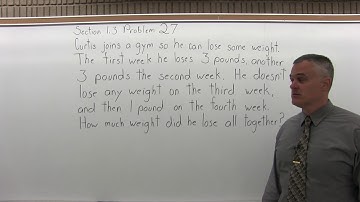 Section 1.3 Problem 27
Curtis joins a gym so he can lose some weight.
The first week he loses 3 pounds, another
3 pounds the second week. He doesn't
lose any weight on the third week,
and then 1 pound on the fourth week.
How much weight did he lose all together?